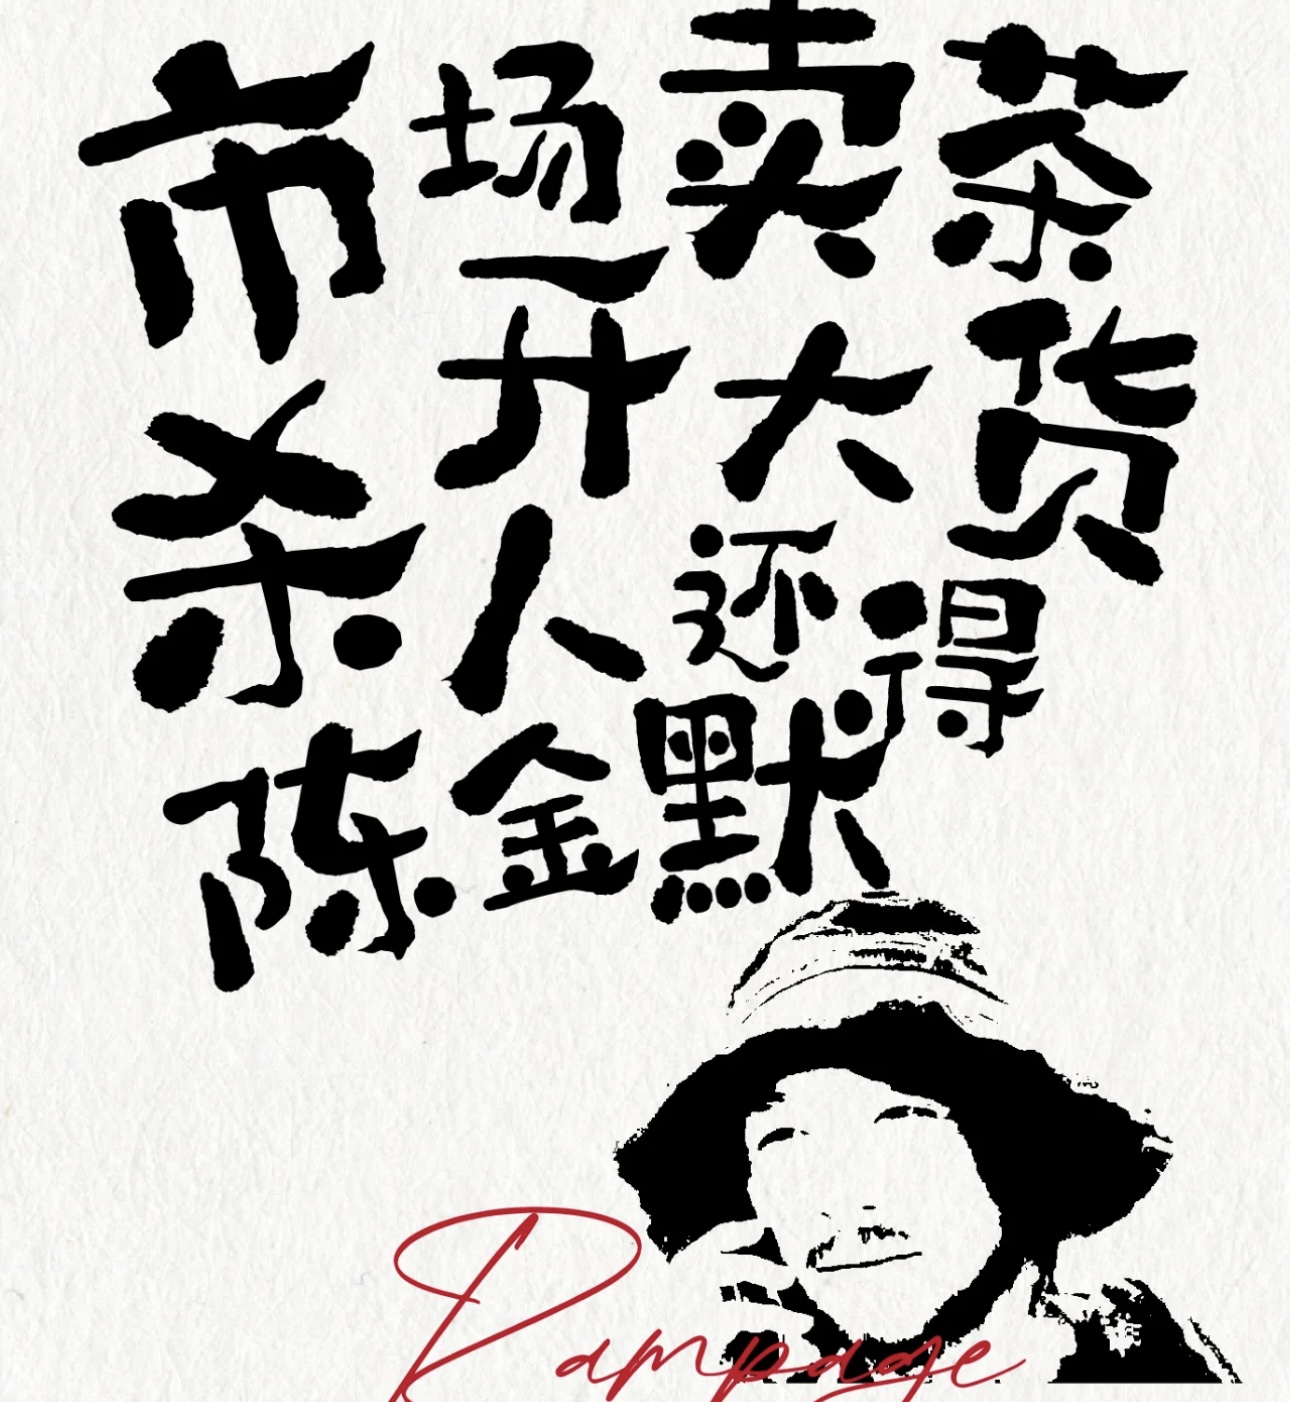 市场卖茶
杀开大货
人还得
陈金默
Rampage